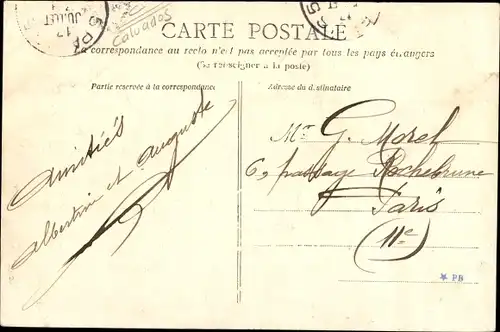 17
JUILLET
Calvados
CARTE POSTALE
La correspondance au recto n'est pas acceptée par tous les pays étrangers
(Se renseigner à la poste)
Partie reservée à la correspondance
Adresse du destinataire
Amitiés
Albertine et Auguste
Mr G. Morel
6, passage Rochebrune
Paris
(11e)
* PB